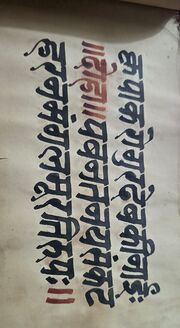 कृपाकरोगुरदेवकीनाईः
॥दोहा॥पवनतनयसंकट
हरनमंगलमूरतिरूपः॥